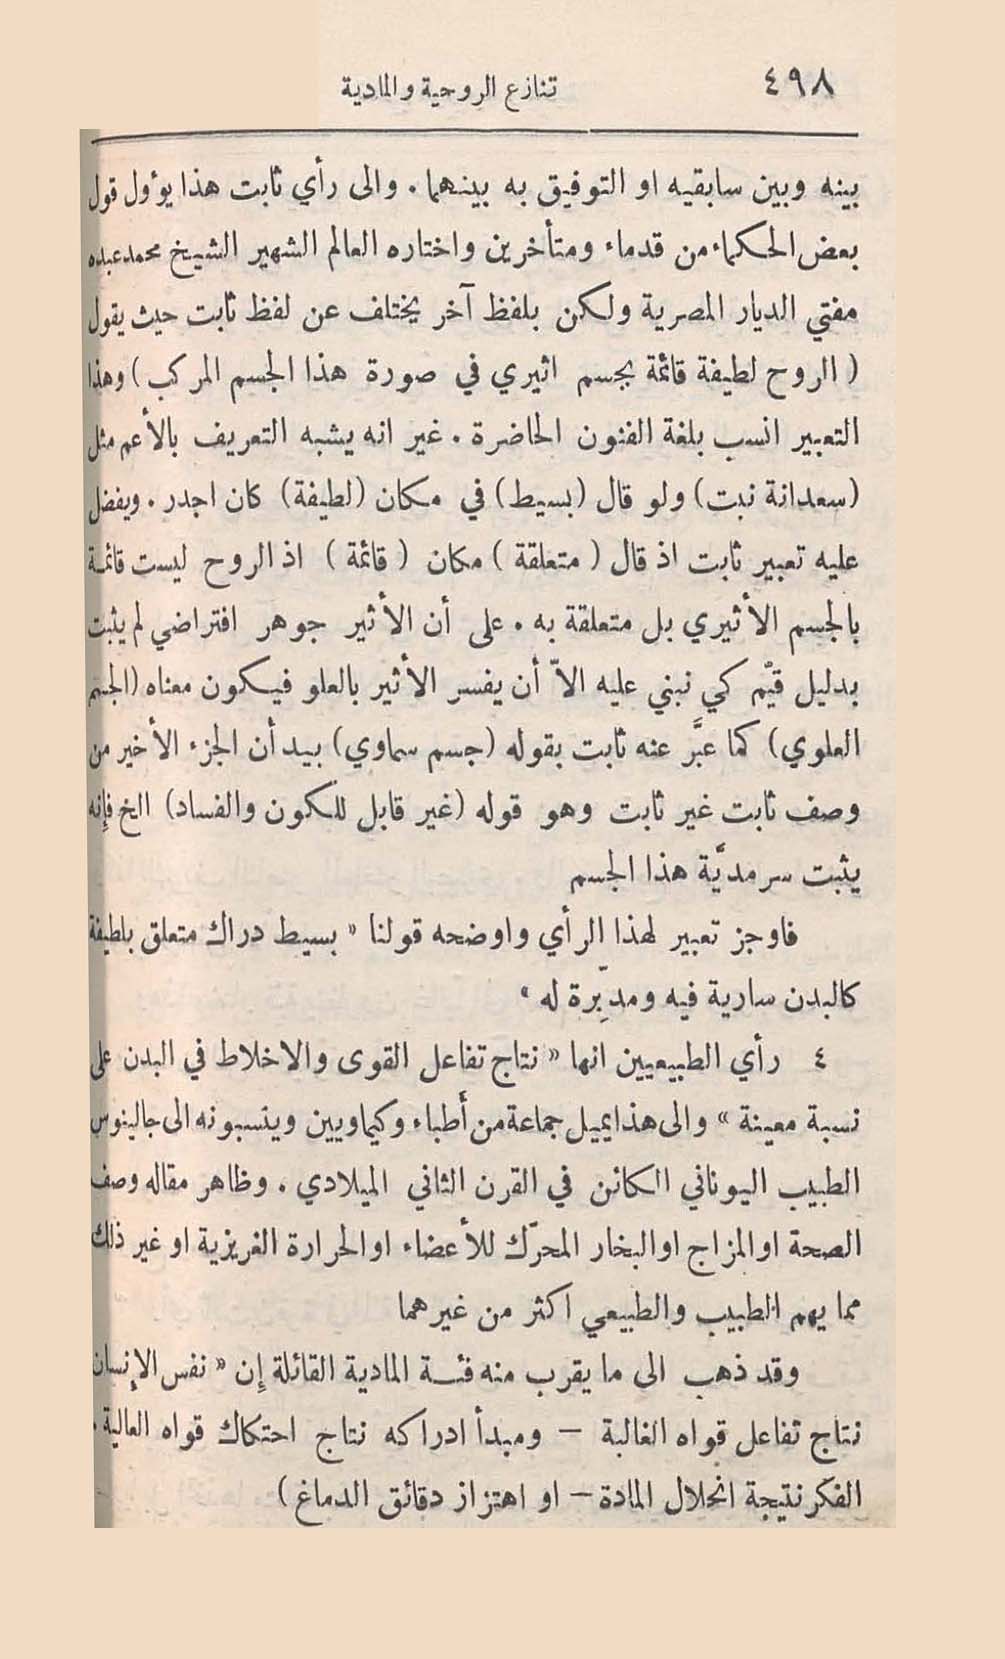 ٤٩٨
تنازع الروحية والمادية
بينه وبين سابقيه او التوفيق به بينهما . والى رأي ثابت هذا يوؤل قول
بعض الحكماء من قدماء ومتأخرين واختاره العالم الشهير الشيخ محمد عبده
مفتي الديار المصرية ولكن بلفظ آخر يختلف عن لفظ ثابت حيث يقول
( الروح لطيفة قائمة بجسم اثيري في صورة هذا الجسم المركب ) وهذا
التعبير انسب بلغة الفنون الحاضرة . غير انه يشبه التعريف بالأعم مثل
(سعدانة نبت) ولو قال (بسيط) في مكان (لطيفة) كان اجدر . ويفضل
عليه تعبير ثابت اذ قال ( متعلقة ) مكان ( قائمة ) اذ الروح ليست قائمة
بالجسم الأثيري بل متعلقة به . على أن الأثير جوهر افتراضي لم يثبت
بدليل قيّم كي نبني عليه الاّ أن يفسر الأثير بالعلو فيكون معناه (الجسم
العلوي) كما عبَّر عنه ثابت بقوله (جسم سماوي) بيد أن الجزء الأخير من
وصف ثابت غير ثابت وهو قوله (غير قابل للكون والفساد) الخ فإنه
يثبت سرمديَّة هذا الجسم
فاوجز تعبير لهذا الرأي واوضحه قولنا « بسيط دراك متعلق بلطيفة
كالبدن سارية فيه ومدبِّرة له »
٤ رأي الطبيعيين انها « نتاج تفاعل القوى والاخلاط في البدن على
نسبة معينة » والى هذا يميل جماعة من أطباء وكيماويين وينسبونه الى جالينوس
الطبيب اليوناني الكائن في القرن الثاني الميلادي . وظاهر مقاله وصف
الصحة او المزاج او البخار المحرّك للأعضاء او الحرارة الغريزية او غير ذلك
مما يهم الطبيب والطبيعي اكثر من غيرهما
وقد ذهب الى ما يقرب منه فئة المادية القائلة إن « نفس الإنسان
نتاج تفاعل قواه الغالبة – ومبدأ ادراكه نتاج احتكاك قواه العالية .
الفكر نتيجة انحلال المادة – او اهتزاز دقائق الدماغ )